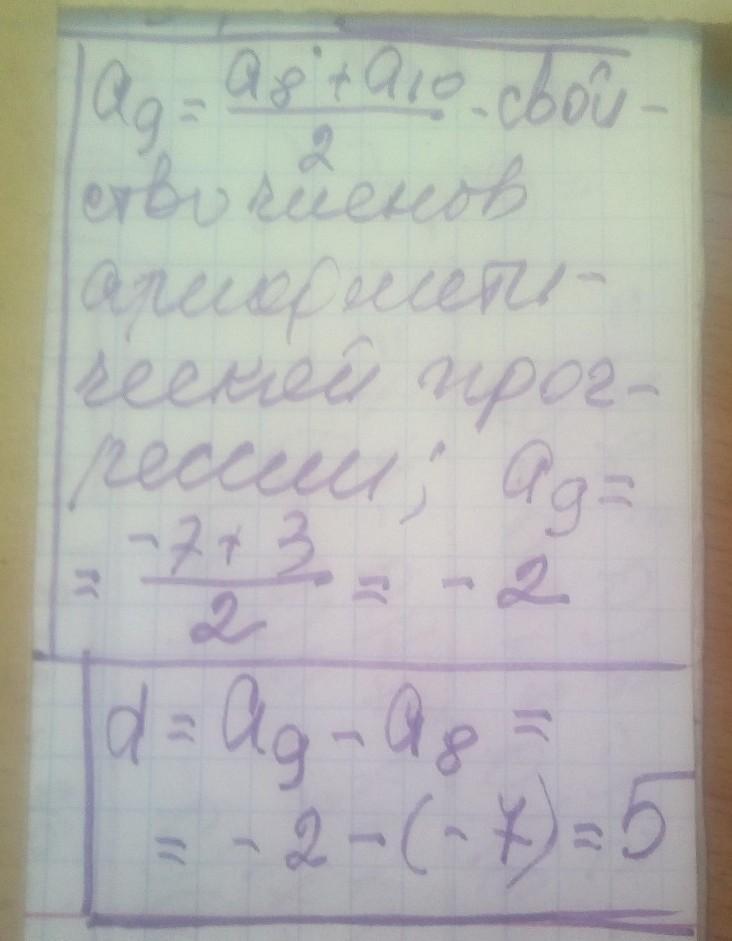 a₉ = (a₈ + a₁₀)/2 - свой-
ство членов
арифмети-
ческой прог-
рессии; a₉ =
= (-7 + 3)/2 = - 2
d = a₉ - a₈ =
= - 2 - (- 7) = 5